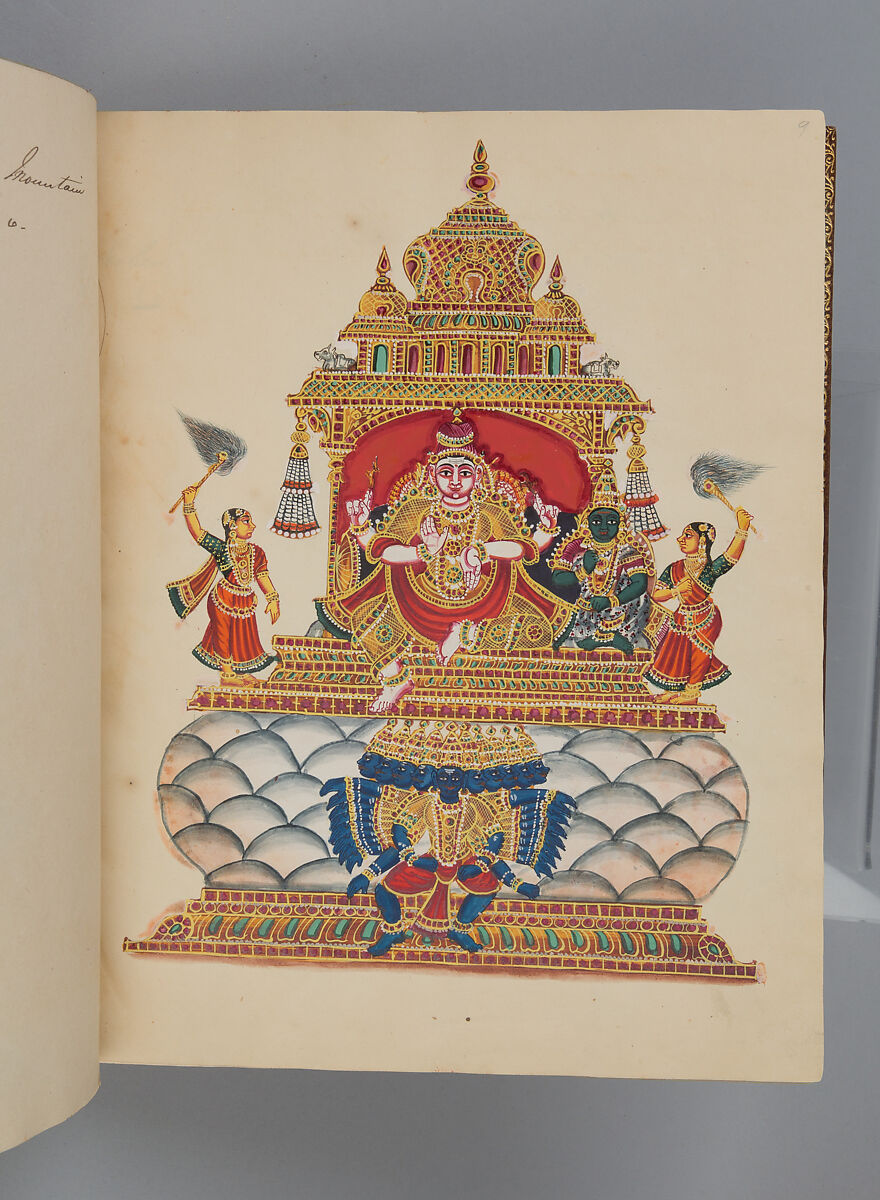 Mountain
6.
9